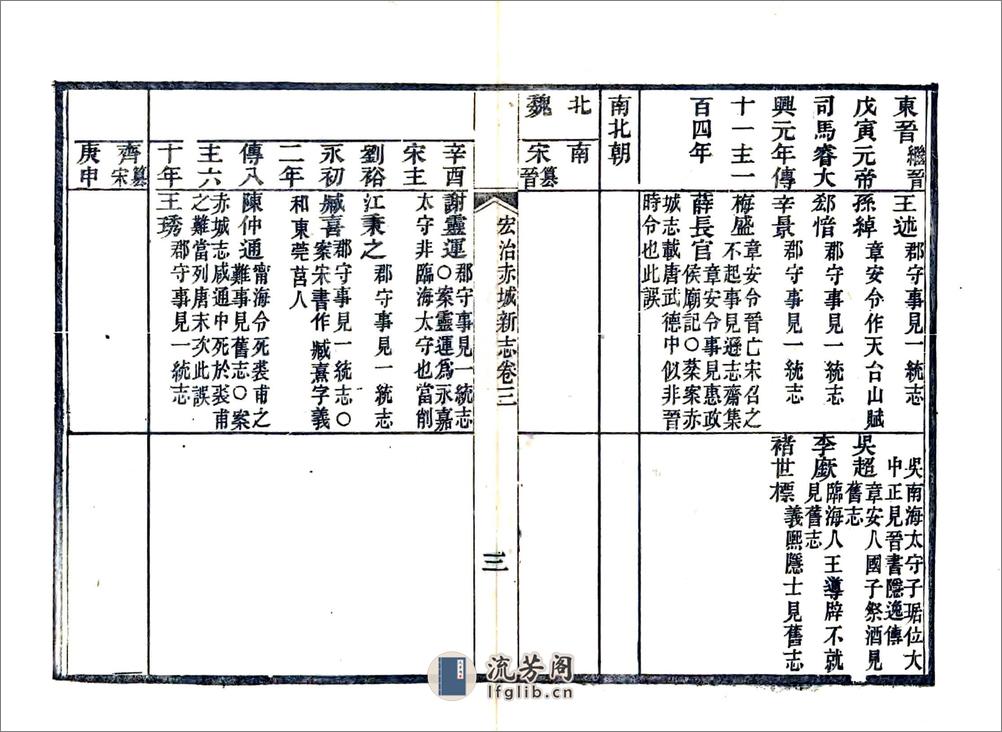 東晉繼晉
戊寅元帝
司馬睿大
興元年傳
十一主一
百四年
王述郡守事見一統志
孫綽章安令作天台山賦
郄愔郡守事見一統志
辛景郡守事見一統志
梅盛章安令晉亡宋召之
不起事見遜志齋集
薛長官章安令事見惠政
侯廟記○葉案赤
城志載唐武德中似非晉
時令也此誤
吳南海太守子琚位大
中正見晉書隱逸傳
吳超章安人國子祭酒見
舊志
李廞臨海人王導辟不就
見舊志
褚世標義熙隱士見舊志
南北朝
北
魏
南
宋篡晉
宏治赤城新志卷三
三
辛酉
宋主
劉裕
永初
二年
傳八
主六
十年
謝靈運郡守事見一統志
○案靈運爲永嘉
太守非臨海太守也當削
江秉之郡守事見一統志
臧喜郡守事見一統志○
案宋書作臧熹字義
和東莞莒人
陳仲通甯海令死裘甫之
難事見舊志○案
赤城志咸通中死於裘甫
之難當列唐末次此誤
王琇郡守事見一統志
齊篡宋
庚申
流芳阁
lfglib.cn